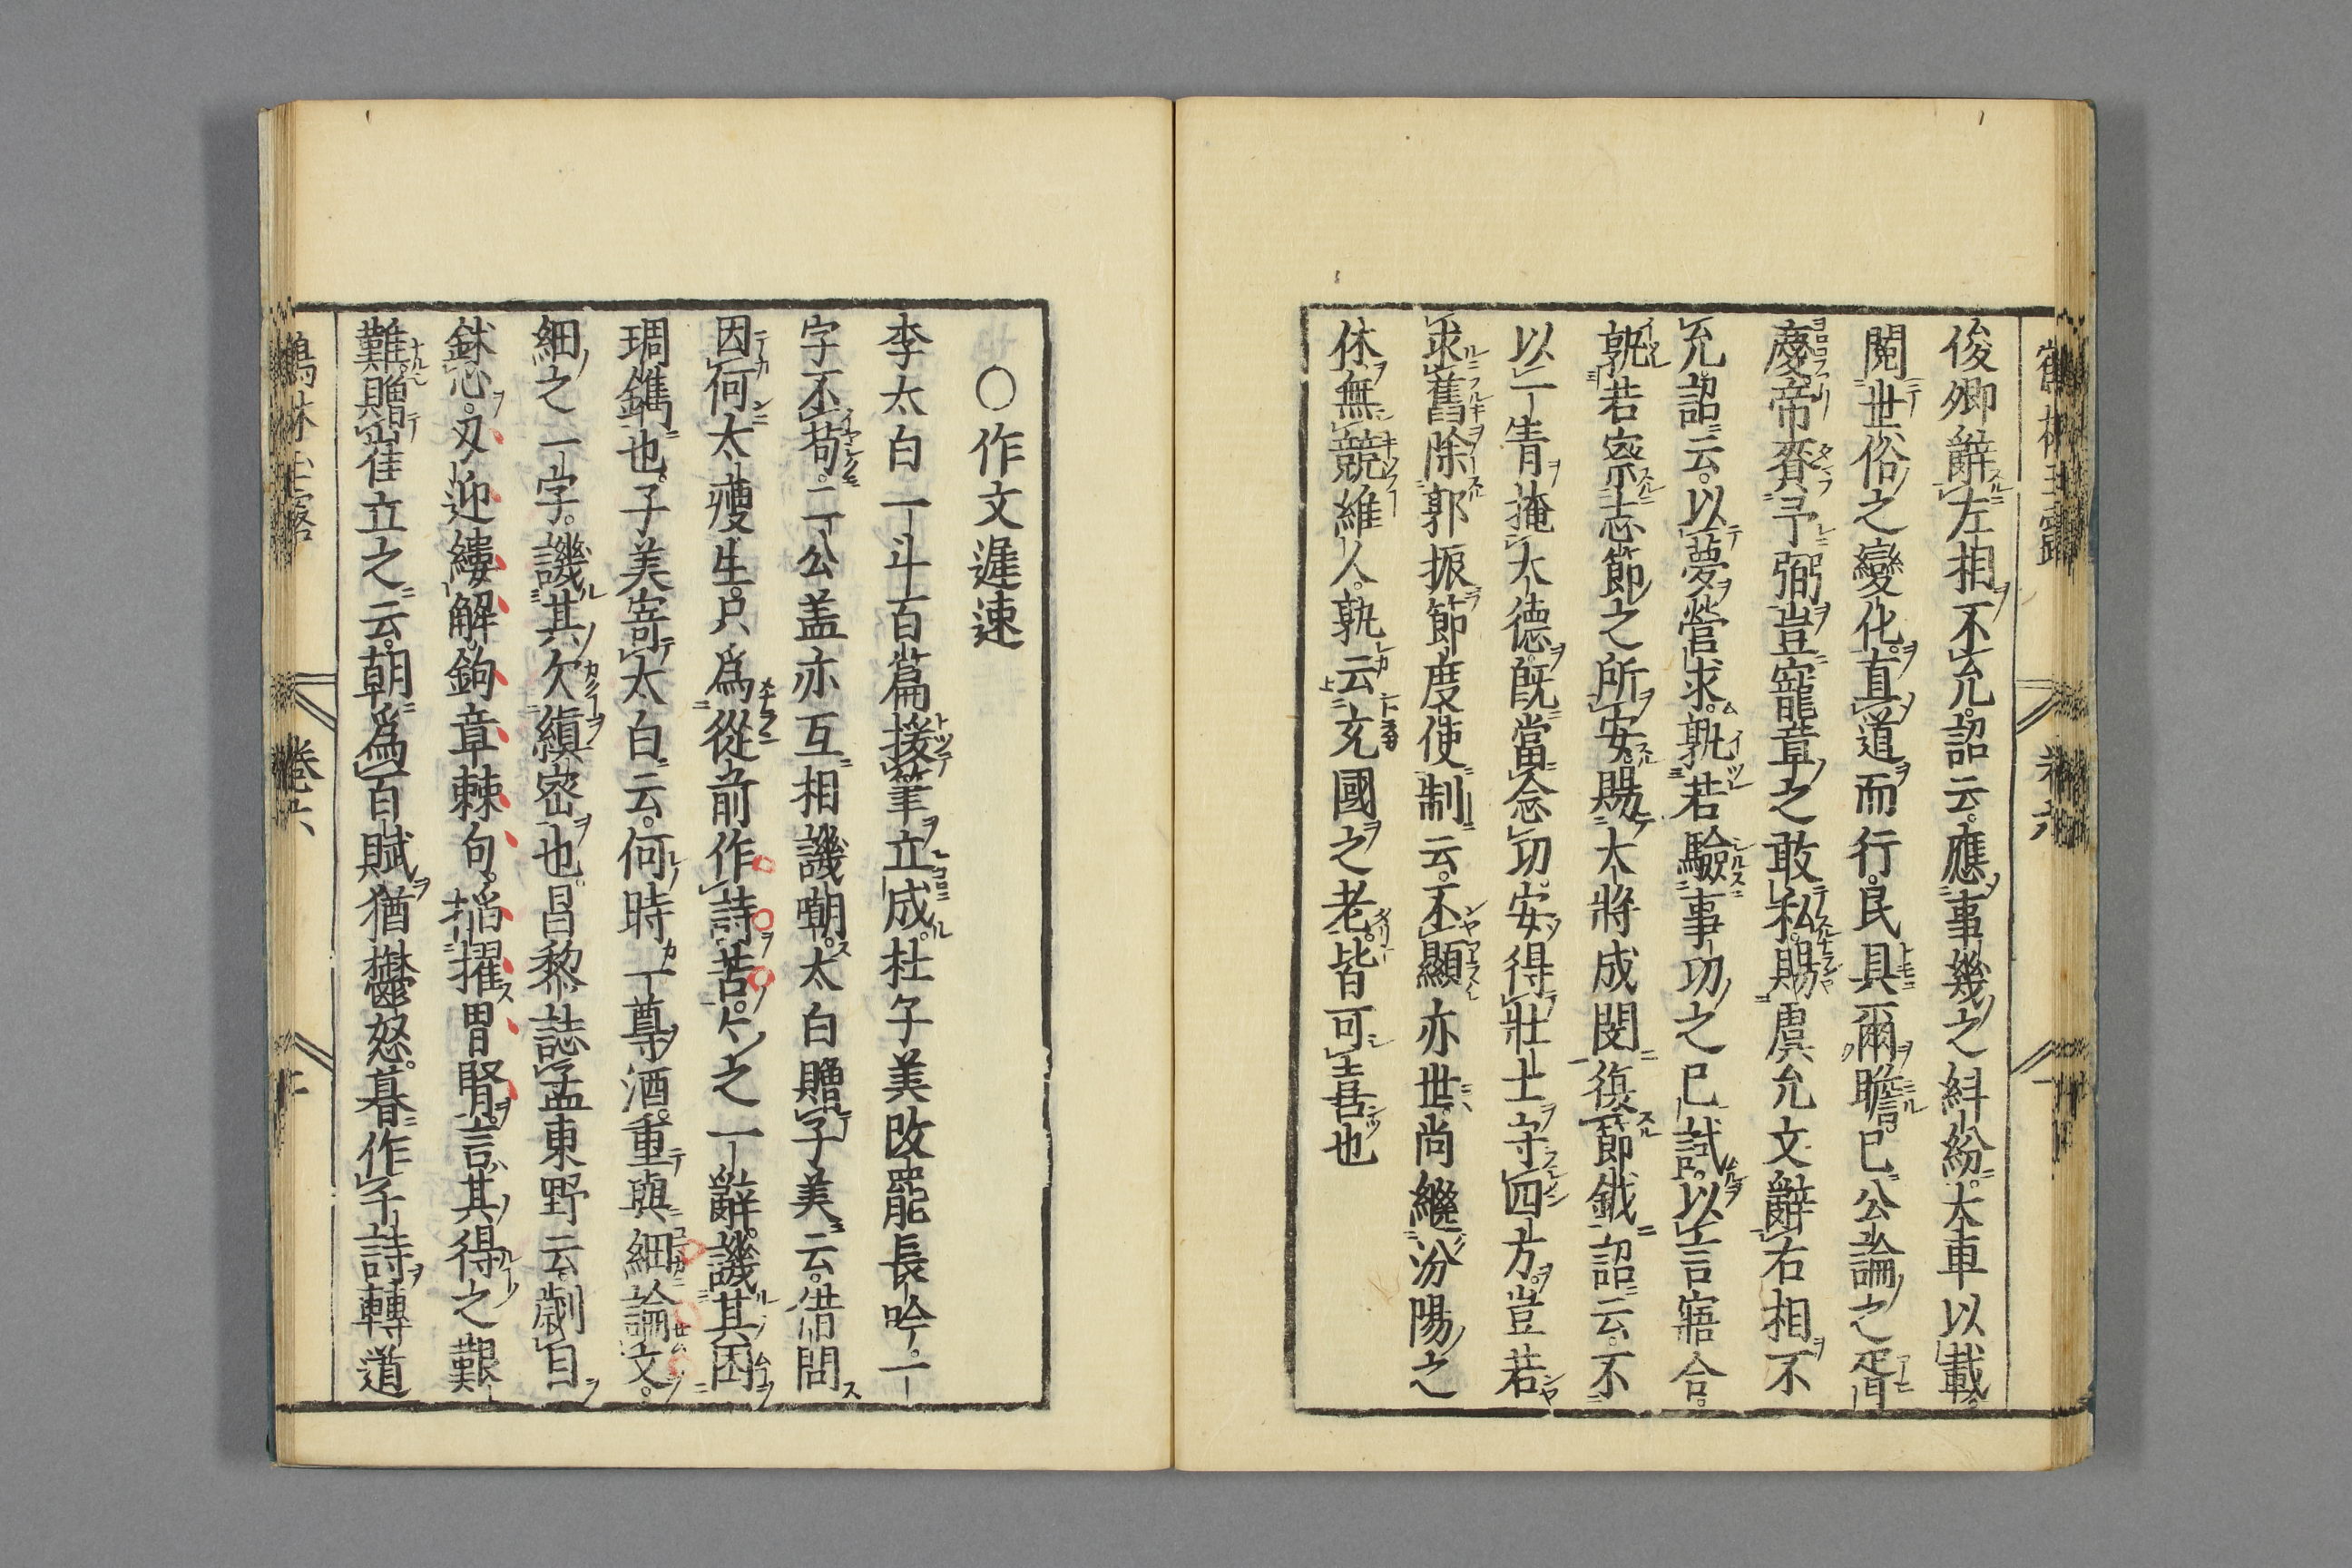 俊卿辭左相不允詔云應事幾之糾紛大車以載
閱世俗之變化真道而行民具爾瞻已公論之胥
慶帝賚予弼豈寵章之敢私賜虞允文辭右相不
允詔云以夢營求孰若驗事功之已試以言寤合
孰若察志節之所安賜大將成閔復節鉞詔云不
以一眚掩大德既當念功安得壯士守四方豈若
求舊除郭振節度使制云丕顯亦世尚繼汾陽之
休無競維人孰云充國之老皆可喜也
鶴林玉露
卷六
〇作文遲速
李太白一斗百篇援筆立成杜子美改罷長吟一
字不苟二公盖亦互相譏嘲太白贈子美云借問
因何太瘦生只爲從前作詩苦苦之一辭譏其困
琱鐫也子美寄太白云何時一尊酒重與細論文
細之一字譏其欠縝密也昌黎誌孟東野云劌目
鉥心刃迎縷解鉤章棘句搯擢胃腎言其得之艱
難贈崔立之云朝爲百賦猶鬱怒暮作千詩轉遒
鶴林玉露
卷六